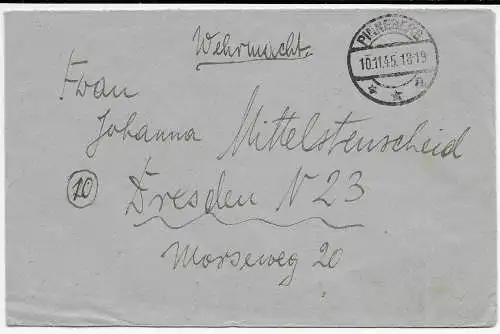 Wehrmacht.
PINNEBERG
10.11.45.18-19
Frau
Johanna Mittelstenscheid
10
Dresden N 23
Morseweg 20